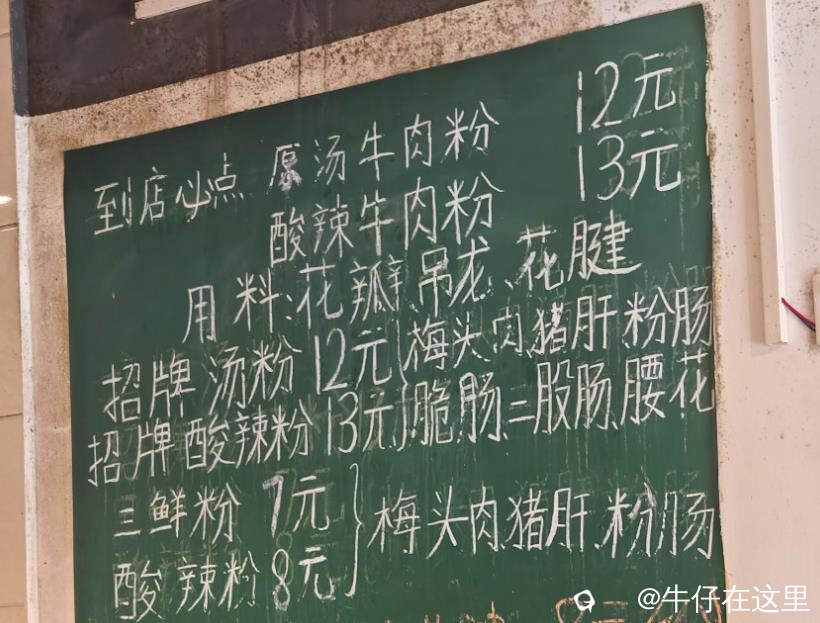 到店必点 原汤牛肉粉 12元
酸辣牛肉粉 13元
用料:花瓣、吊龙、花腱
招牌汤粉 12元 梅头肉猪肝.粉肠
招牌酸辣粉 13元 脆肠.二股肠.腰花
三鲜粉 7元
梅头肉猪肝.粉肠
酸辣粉 8元
@牛仔在这里